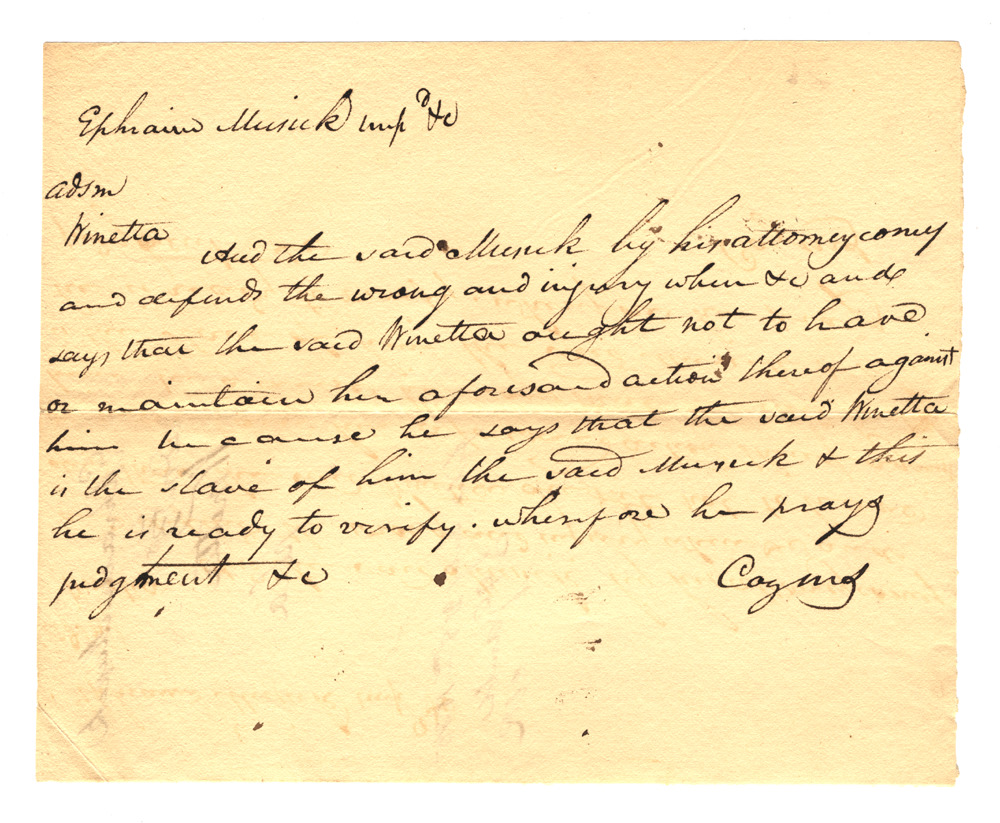 Ephraim Musick imp^d &c
adsm
Winetta
And the said Musick by his attorney comes
and defends the wrong and injury when &c and
says that the said Winetta ought not to have
or maintain her aforesaid action thereof against
him because he says that the said Winetta
is the slave of him the said Musick & this
he is ready to verify. wherefore he prays
judgment &c